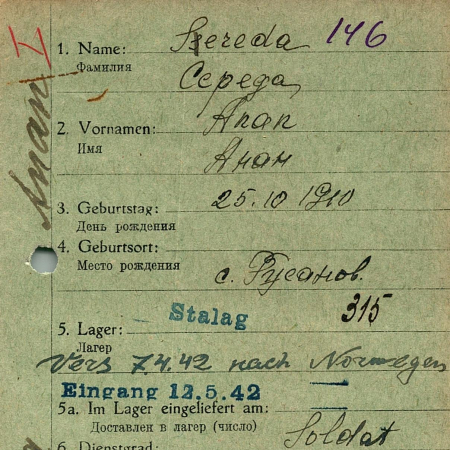 1. Name: Szereda 146
Фамилия Середа
2. Vornamen: Anan
Имя Анан
3. Geburtstag: 25.10 1910
День рождения
4. Geburtsort:
Место рождения с. Русанов.
Stalag 315
5. Lager:
Лагерь
Vers 7.4.42 nach Norwegen
Eingang 12.5.42
5a. Im Lager eingeliefert am:
Доставлен в лагерь (число)
6. Dienstgrad: Soldat